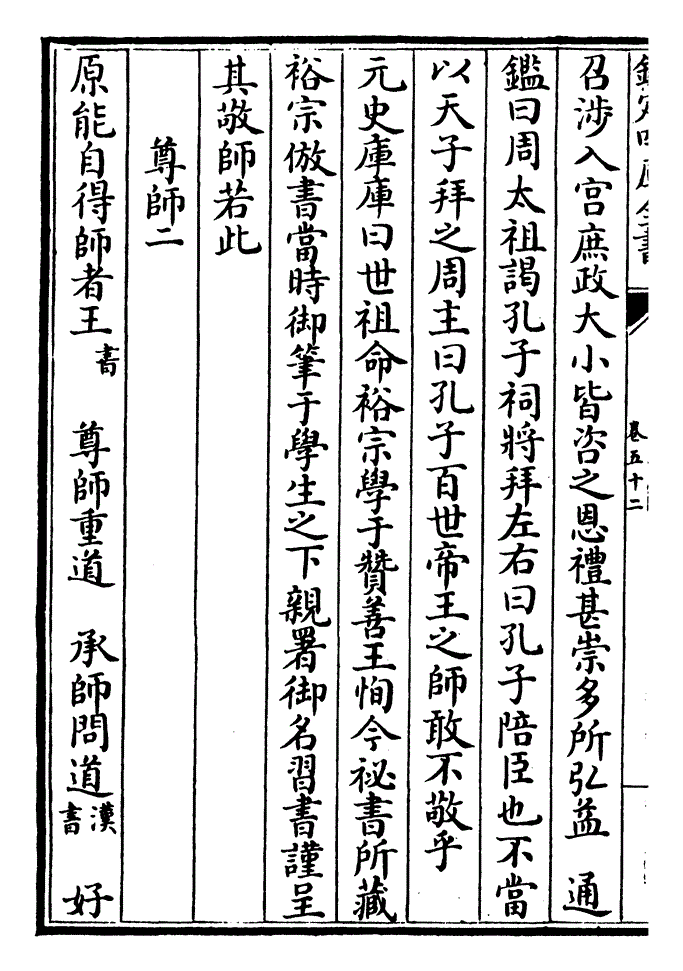 欽定四庫全書
卷五十二
召涉入宮庶政大小皆咨之恩禮甚崇多所弘益　通
鑑曰周太祖謁孔子祠將拜左右曰孔子陪臣也不當
以天子拜之周主曰孔子百世帝王之師敢不敬乎
元史庫庫曰世祖命裕宗學于贊善王恂今祕書所藏
裕宗倣書當時御筆于學生之下親署御名習書謹呈
其敬師若此
尊師二
原能自得師者王書　尊師重道　承師問道漢書　好